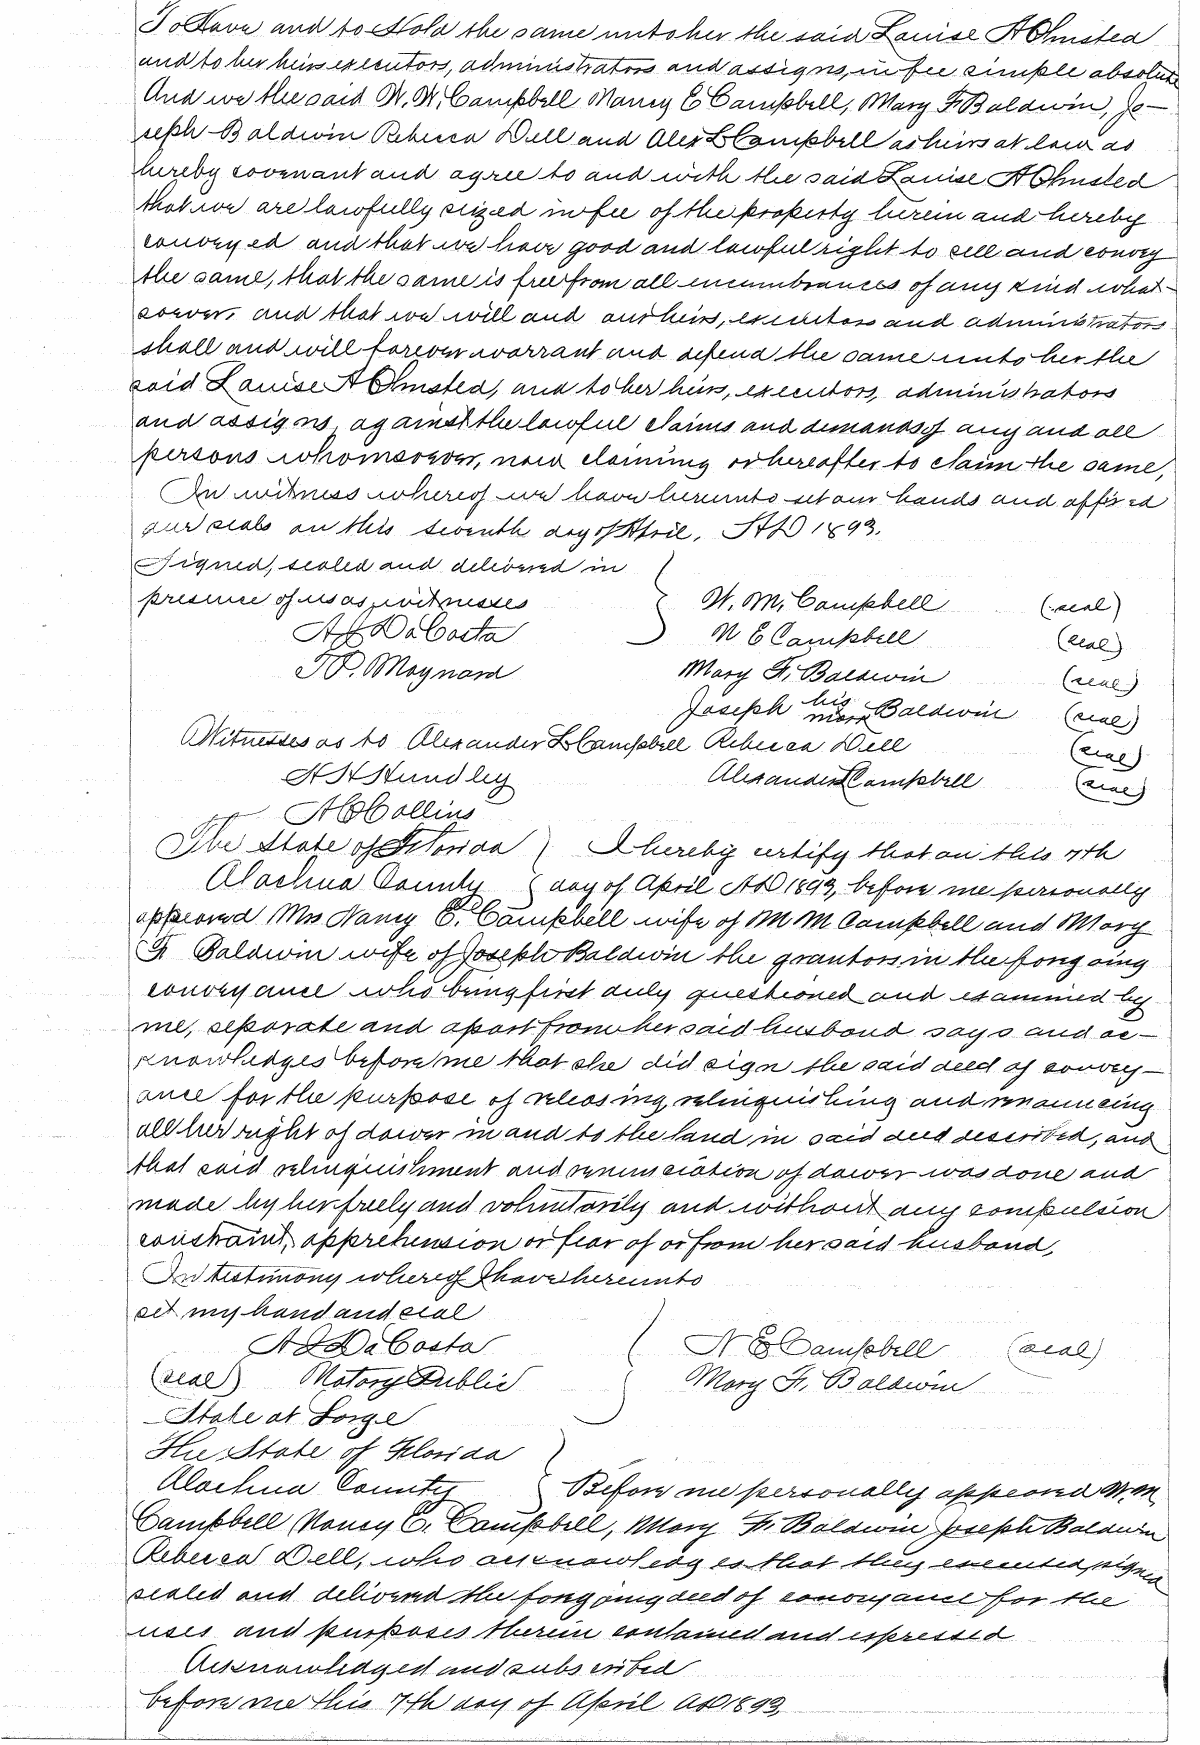 To Have and to Hold the same unto her the said Louise A Olmsted
and to her heirs executors, administrators and assigns, in fee simple absolute
And we the said W. W. Campbell Nancy E Campbell, Mary F. Baldwin, Jo-
seph Baldwin Rebecca Dell and Alex L Campbell as heirs at law do
hereby covenant and agree to and with the said Louise A Olmsted
that we are lawfully seized in fee of the property herein and hereby
conveyed and that we have good and lawful right to sell and convey
the same, that the same is free from all encumbrances of any kind what-
soever, and that we will and our heirs, executors and administrators
shall and will forever warrant and defend the same unto her the
said Louise A Olmsted, and to her heirs, executors, administrators
and assigns, against the lawful claims and demands of any and all
persons whomsoever, now claiming or hereafter to claim the same,
In witness whereof we have hereunto set our hands and affixed
our seals on this seventh day of April, AD 1893.
Signed, sealed and delivered in
presence of us as witnesses W. M. Campbell (seal)
A J DaCosta N E Campbell (seal)
T. P. Maynard Mary F. Baldwin (seal)
Joseph his mark Baldwin (seal)
Witnesses as to Alexander L Campbell Rebecca Dell (seal)
A H Hundley Alexander L Campbell (seal)
A C Collins
The State of Florida I hereby certify that on this 7th
Alachua County day of April AD 1893, before me personally
appeared Mrs Nancy E. Campbell wife of M M Campbell and Mary
F. Baldwin wife of Joseph Baldwin the grantors in the foregoing
conveyance who being first duly questioned and examined by
me, separate and apart from her said husband says and ac-
knowledges before me that she did sign the said deed of convey-
ance for the purpose of releasing, relinquishing and renouncing
all her right of dower in and to the land in said deed described, and
that said relinquishment and renunciation of dower was done and
made by her freely and voluntarily and without any compulsion
constraint, apprehension or fear of or from her said husband,
In testimony whereof I have hereunto
set my hand and seal
A J DaCosta N E Campbell (seal)
(seal) Notary Public Mary F. Baldwin
State at Large
The State of Florida
Alachua County Before me personally appeared W. M
Campbell Nancy E. Campbell, Mary F. Baldwin Joseph Baldwin
Rebecca Dell, who acknowledges that they executed, signed
sealed and delivered the foregoing deed of conveyance for the
uses and purposes therein contained and expressed
Acknowledged and subscribed
before me this 7th day of April AD 1893,